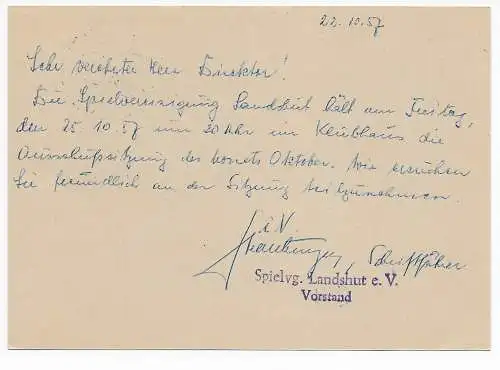 22.10.57
Sehr verehrter Herr Direktor!
Die Spielvereinigung Landshut hält am Freitag,
den 25.10.57 um 20 Uhr im Klubhaus die
Ausschußsitzung des Monats Oktober. Wir ersuchen
Sie freundlich an der Sitzung teilzunehmen.
i.V.
Schriftführer
Spielvg. Landshut e. V.
Vorstand